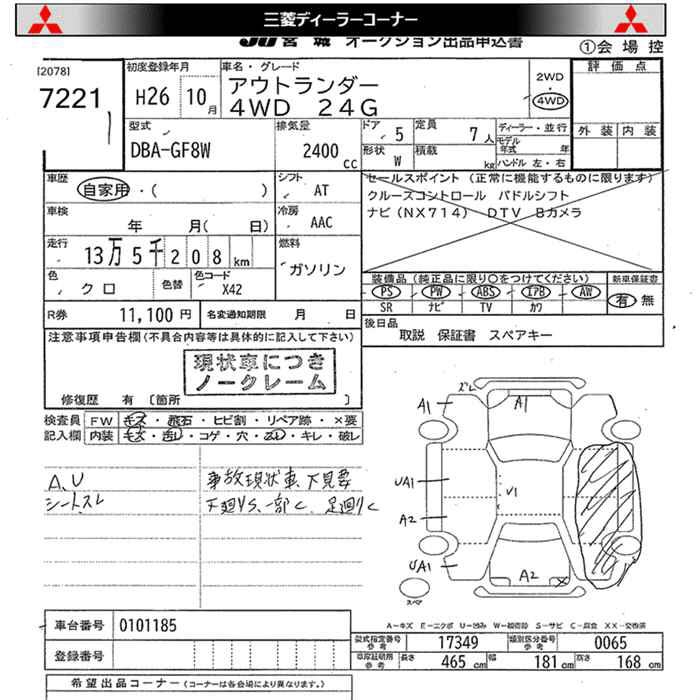 三菱ディーラーコーナー
JU宮城 オークション出品申込書
①会場控
[2078]
7221
初度登録年月
H26 10月
車名・グレード
アウトランダー
4WD 24G
2WD
・
4WD
評価点
外装 内装
型式
DBA-GF8W
排気量
2400 cc
ドア 5
定員 7人
形状 W
積載 kg
ディーラー・並行
モデル年式 年
ハンドル 左・右
車歴
自家用・( )
シフト AT
車検
年 月( 日)
冷房 AAC
走行
13万5千208km
燃料
ガソリン
色
クロ
色替
色コード
X42
セールスポイント (正常に機能するものに限ります)
クルーズコントロール パドルシフト
ナビ(NX714) DTV Bカメラ
装備品(純正品に限り○をつけてください)
新車保証書
PS PW ABS エアB AW
SR ナビ TV カワ
有 無
R券 11,100円
名変通知期限 月 日
後日品
取説 保証書 スペアキー
注意事項申告欄(不具合内容等は具体的に記入して下さい)
現状車につき
ノークレーム
修復歴 有 [箇所 ]
検査員記入欄
FW キズ・飛石・ヒビ割・リペア跡・×要
内装 キズ・汚レ・コゲ・穴・スレ・キレ・破レ
A、U
シートスレ
事故現状車、下見要
下廻りS、一部く、足廻りく
スレ
A1
A1
UA1
V1
A2
UA1
A2
スペア
A-キズ E-エクボ U-凹み W-補修跡 S-サビ C-腐食 XX-交換済
車台番号 0101185
登録番号
型式指定番号 参考 17349
類別区分番号 参考 0065
車庫証明用 参考 長さ 465cm 幅 181cm 高さ 168cm
希望出品コーナー(コーナーは各会場により異なります。)